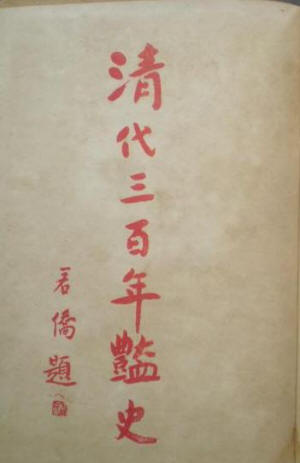 清代三百年豔史
君僑題